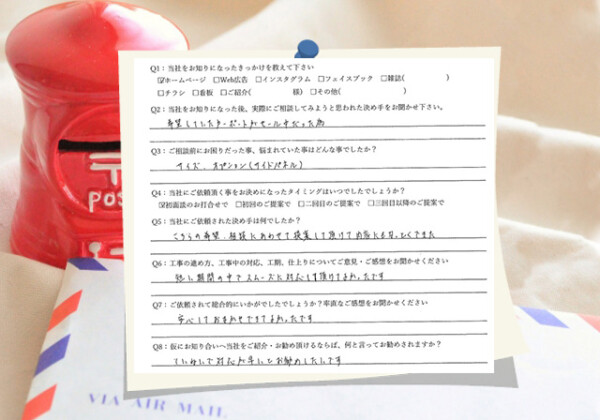 Q1：当社をお知りになったきっかけを教えて下さい
☑ホームページ □Web広告 □インスタグラム □フェイスブック □雑誌( )
□チラシ □看板 □ご紹介( 様) □その他( )
Q2：当社をお知りになった後、実際にご相談してみようと思われた決め手をお聞かせ下さい。
希望していたカーポートがセール中だった為
Q3：ご相談前にお困りだった事、悩まれていた事はどんな事でしたか？
サイズ、オプション(サイドパネル)
Q4：当社にご依頼頂く事をお決めになったタイミングはいつでしたでしょうか？
☑初面談のお打合せで □初回のご提案で □二回目のご提案で □三回目以降のご提案で
Q5：当社にご依頼された決め手は何でしたか？
こちらの希望、相談にあわせて提案して頂けて内容に
Q6：工事の進め方、工事中の対応、工期、仕上りについてご意見・ご感想をお聞かせください
短い期間の中でスムーズに対応して頂けてよかったです
Q7：ご依頼されて総合的にいかがでしたでしょうか？率直なご感想をお聞かせください
安心しておまかせできてよかったです
Q8：仮にお知り合いへ当社をご紹介・お勧め頂けるならば、何と言ってお勧めされますか？
ていねいで対応が
POS
VIA AIR MAIL